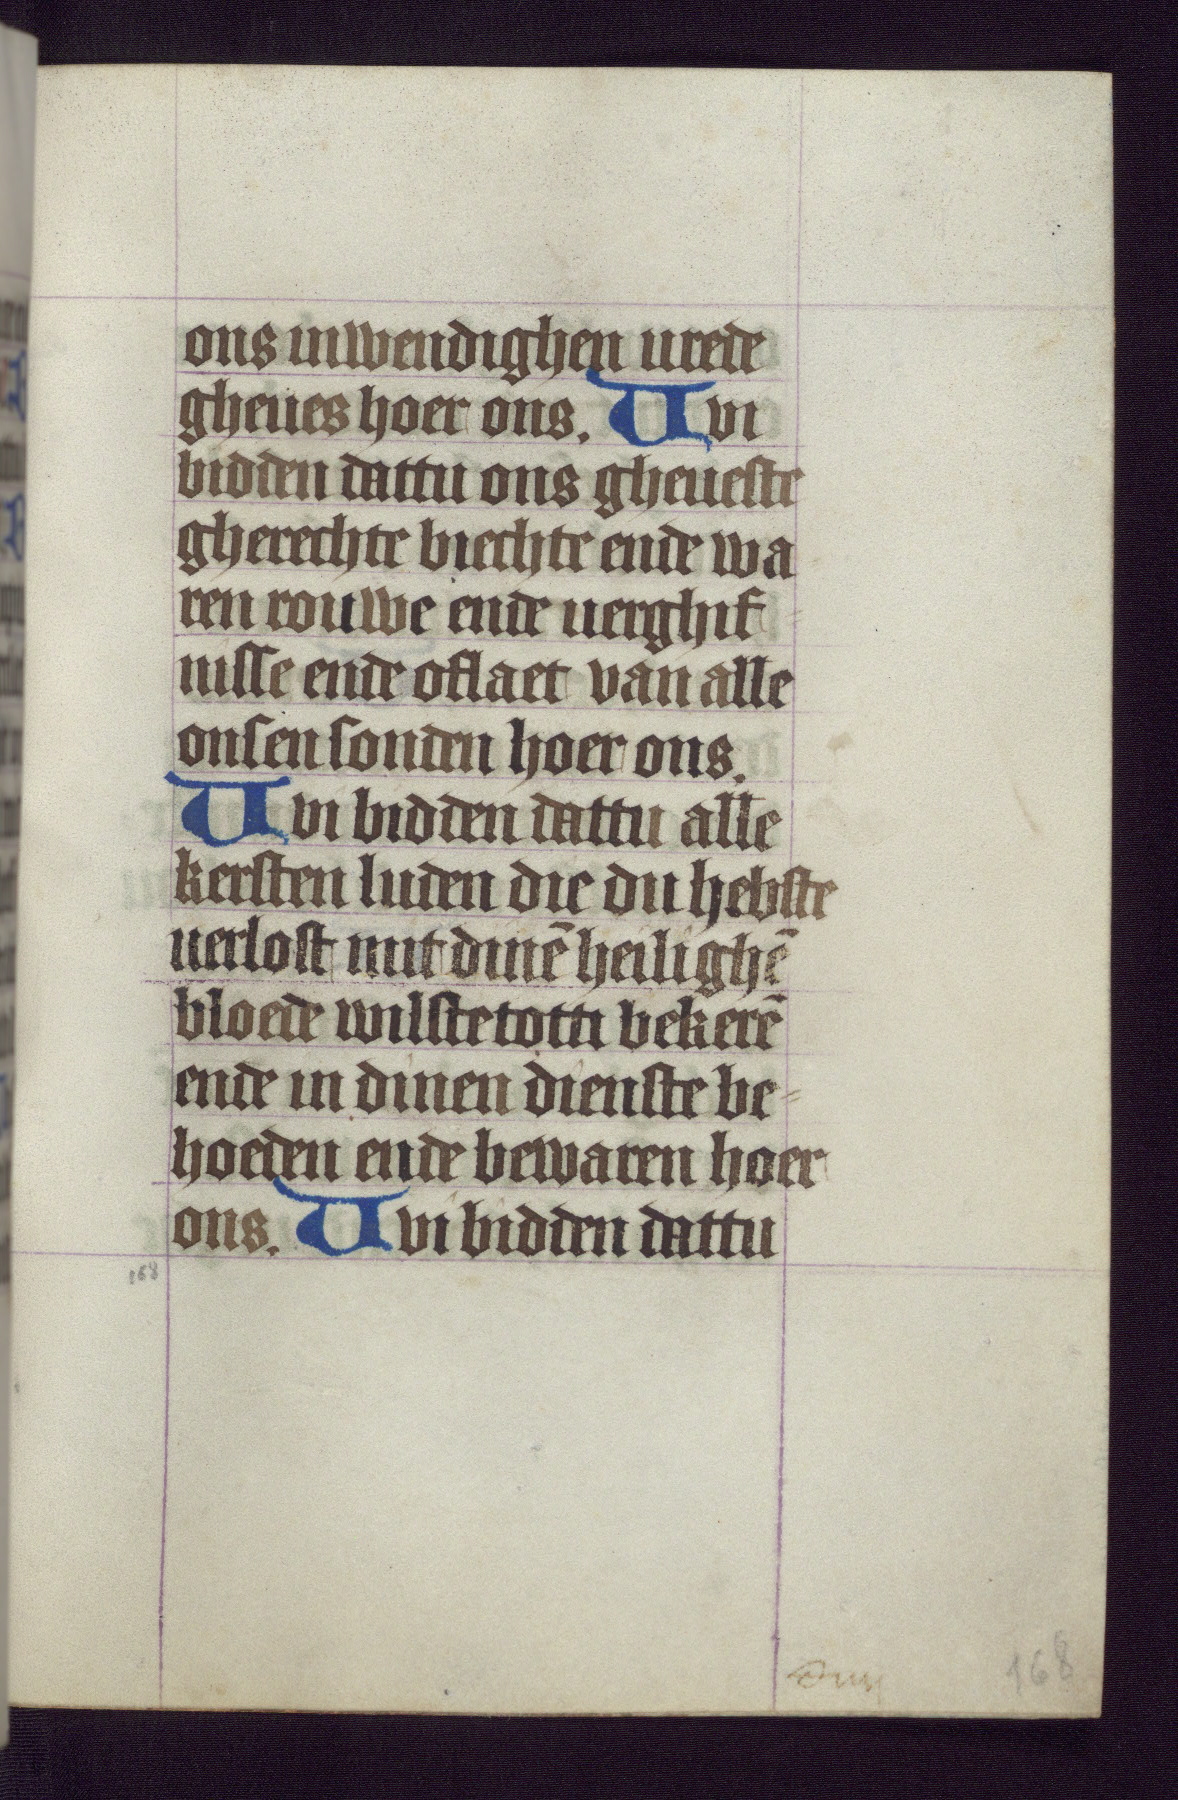 ons inwendighen urede
gheues hoer ons. Uvi
bidden dattu ons gheueste
gherechte biechte ende wa
ren rouwe ende uerghif-
nisse ende oflaet van alle
onsen sonden hoer ons.
Uvi bidden dattu alle
kersten luden die du hebste
uerlost mit dinē heilighē
bloede wilste totti bekerē
ende in dinen dienste be-
hoeden ende bewaren hoer
ons. Uvi bidden dattu
168
168